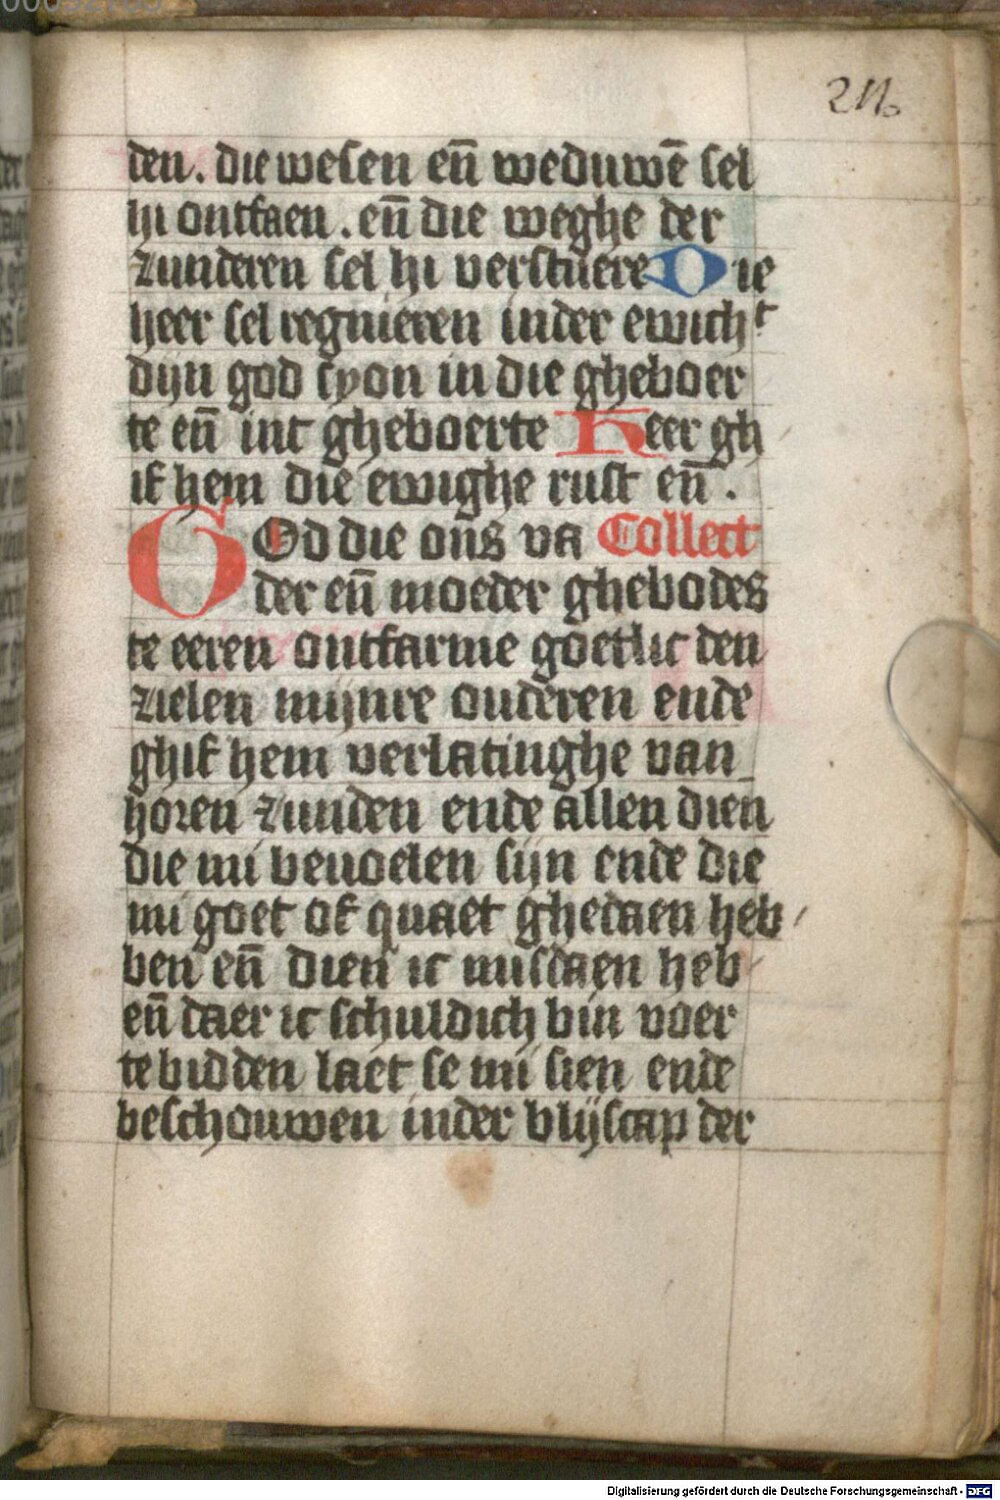 211.
den. die wesen en̄ weduwē sel
hi ontfaen. en̄ die weghe der
zunderen sel hi verstuere Die
heer sel regnieren inder ewichᵗ
dijn god syon in die gheboer
te en̄ int gheboerte Heer gh
if hem die ewighe rust en̄.
GOd die ons va Collect
der en̄ moeder ghebodes
te eeren ontfarme goetlic den
zielen mijnre ouderen ende
ghif hem verlatinghe van
horen zunden ende allen dien
die mi beuolen sijn ende die
mi goet of quaet ghedaen heb
ben en̄ dien ic misdaen heb
en̄ daer ic schuldich bin voer
te bidden laet se mi sien ende
beschouwen inder blijscap der
Digitalisierung gefördert durch die Deutsche Forschungsgemeinschaft - DFG